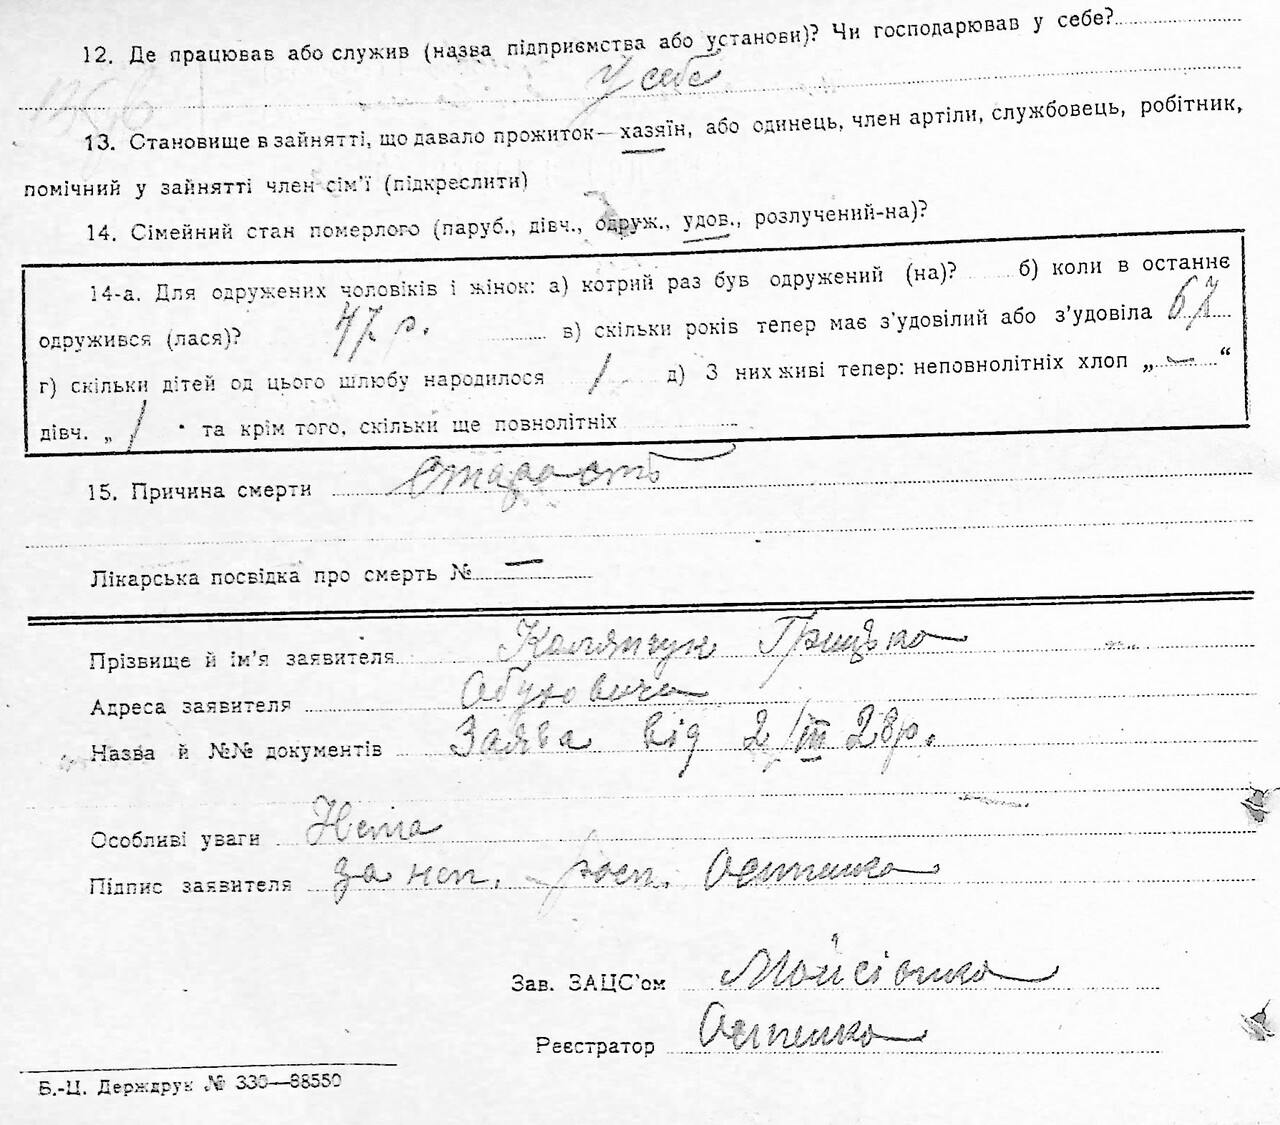 12. Де працював або служив (назва підприємства або установи)? Чи господарював у себе?
У себе
13. Становище в зайнятті, що давало прожиток— хазяїн, або одинець, член артіли, службовець, робітник,
помічний у зайнятті член сім'ї (підкреслити)
14. Сімейний стан померлого (паруб., дівч., одруж., удов., розлучений-на)?
14-а. Для одружених чоловіків і жінок: а) котрий раз був одружений (на)? б) коли в останнє
одружився (лася)? 47 р. в) скільки років тепер має з'удовілий або з'удовіла 67
г) скільки дітей од цього шлюбу народилося 1 д) З них живі тепер: неповнолітніх хлоп „ — “
дівч. „ 1 " та крім того, скільки ще повнолітніх
15. Причина смерти Старость
Лікарська посвідка про смерть № —
Прізвище й ім'я заявителя Грицько
Адреса заявителя
Назва й №№ документів Заява від 2/III 28р.
Особливі уваги Нета
Підпис заявителя за неп. росп. Остенко
Зав. ЗАЦС'ом Мойсієнко
Реєстратор Остенко
Б.-Ц. Держдрук № 330—88550